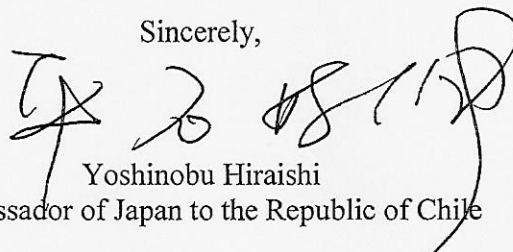 Sincerely,
平石好伸
Yoshinobu Hiraishi
ssador of Japan to the Republic of Chile